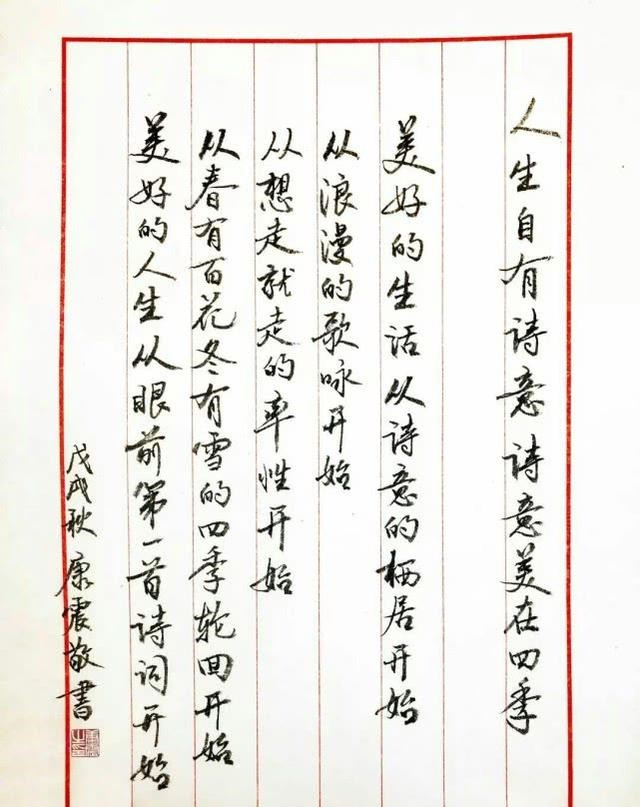 人生自有诗意 诗意美在四季
美好的生活从诗意的栖居开始
从浪漫的歌咏开始
从想走就走的率性开始
从春有百花冬有雪的四季轮回开始
美好的人生从眼前第一首诗词开始
戊戌秋 康震敬書